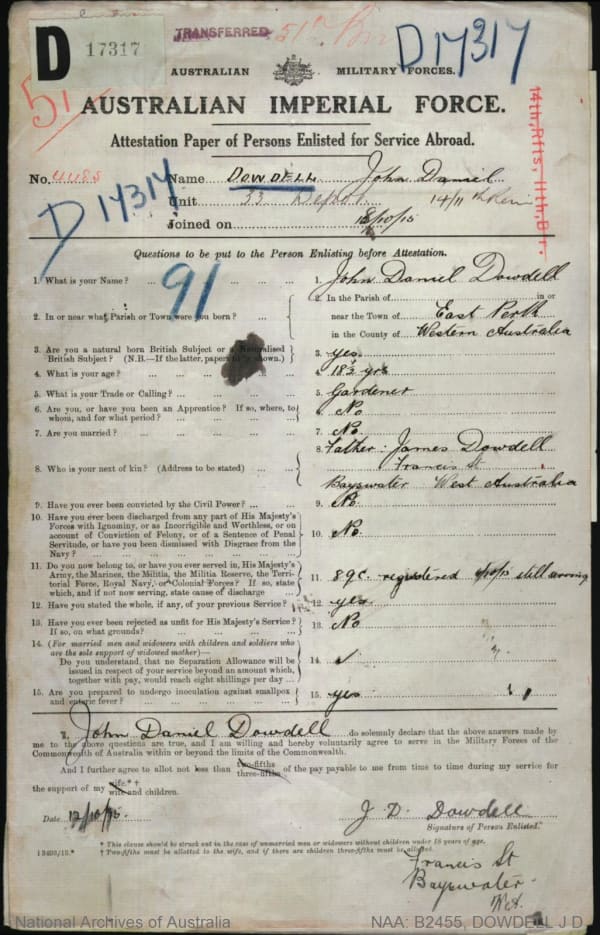 D 17317
TRANSFERRED 51st
D17317
51
AUSTRALIAN MILITARY FORCES.
AUSTRALIAN IMPERIAL FORCE.
Attestation Paper of Persons Enlisted for Service Abroad.
14th Rfts, 11th Bn.
No. Name DOWDELL John Daniel
D17317
Unit 33 Depot 14/11
Joined on
Questions to be put to the Person Enlisting before Attestation.
91
1. What is your Name? ... 1. John Daniel Dowdell
2. In or near what Parish or Town were you born? ... 2. In the Parish of in or
near the Town of East Perth
in the County of Western Australia
3. Are you a natural born British Subject or a Naturalised
British Subject? (N.B.—If the latter, papers to be shown.) 3. yes
4. What is your age? ... 4. 18½ yrs
5. What is your Trade or Calling? ... 5. Gardener
6. Are you, or have you been an Apprentice? If so, where, to
whom, and for what period? ... 6. No
7. Are you married? ... 7. No
8. Who is your next of kin? (Address to be stated) ... 8. Father: James Dowdell
Francis St
Bayswater West Australia
9. Have you ever been convicted by the Civil Power? ... 9. No
10. Have you ever been discharged from any part of His Majesty's
Forces with Ignominy, or as Incorrigible and Worthless, or on
account of Conviction of Felony, or of a Sentence of Penal
Servitude, or have you been dismissed with Disgrace from the
Navy? ... 10. No.
11. Do you now belong to, or have you ever served in, His Majesty's
Army, the Marines, the Militia, the Militia Reserve, the Terri-
torial Force, Royal Navy, or Colonial Forces? If so, state
which, and if not now serving, state cause of discharge 11. 89C. registered still serving
12. Have you stated the whole, if any, of your previous Service? 12. yes
13. Have you ever been rejected as unfit for His Majesty's Service?
If so, on what grounds? ... 13. No
14. (For married men and widowers with children and soldiers who
are the sole support of widowed mother)—
Do you understand, that no Separation Allowance will be
issued in respect of your service beyond an amount which,
together with pay, would reach eight shillings per day ... 14.
15. Are you prepared to undergo inoculation against smallpox
and enteric fever? ... 15. yes
I, John Daniel Dowdell do solemnly declare that the above answers made by
me to the above questions are true, and I am willing and hereby voluntarily agree to serve in the Military Forces of the
Commonwealth of Australia within or beyond the limits of the Commonwealth.
And I further agree to allot not less than two-fifths three-fifths of the pay payable to me from time to time during my service for
the support of my wife.* † wife and children.
Date 12/10/15
J. D. Dowdell
Signature of Person Enlisted.
* This clause should be struck out in the case of unmarried men or widowers without children under 18 years of age.
† Two-fifths must be allotted to the wife, and if there are children three-fifths must be allotted.
Francis St
Bayswater
W.A.
National Archives of Australia NAA: B2455, DOWDELL J D